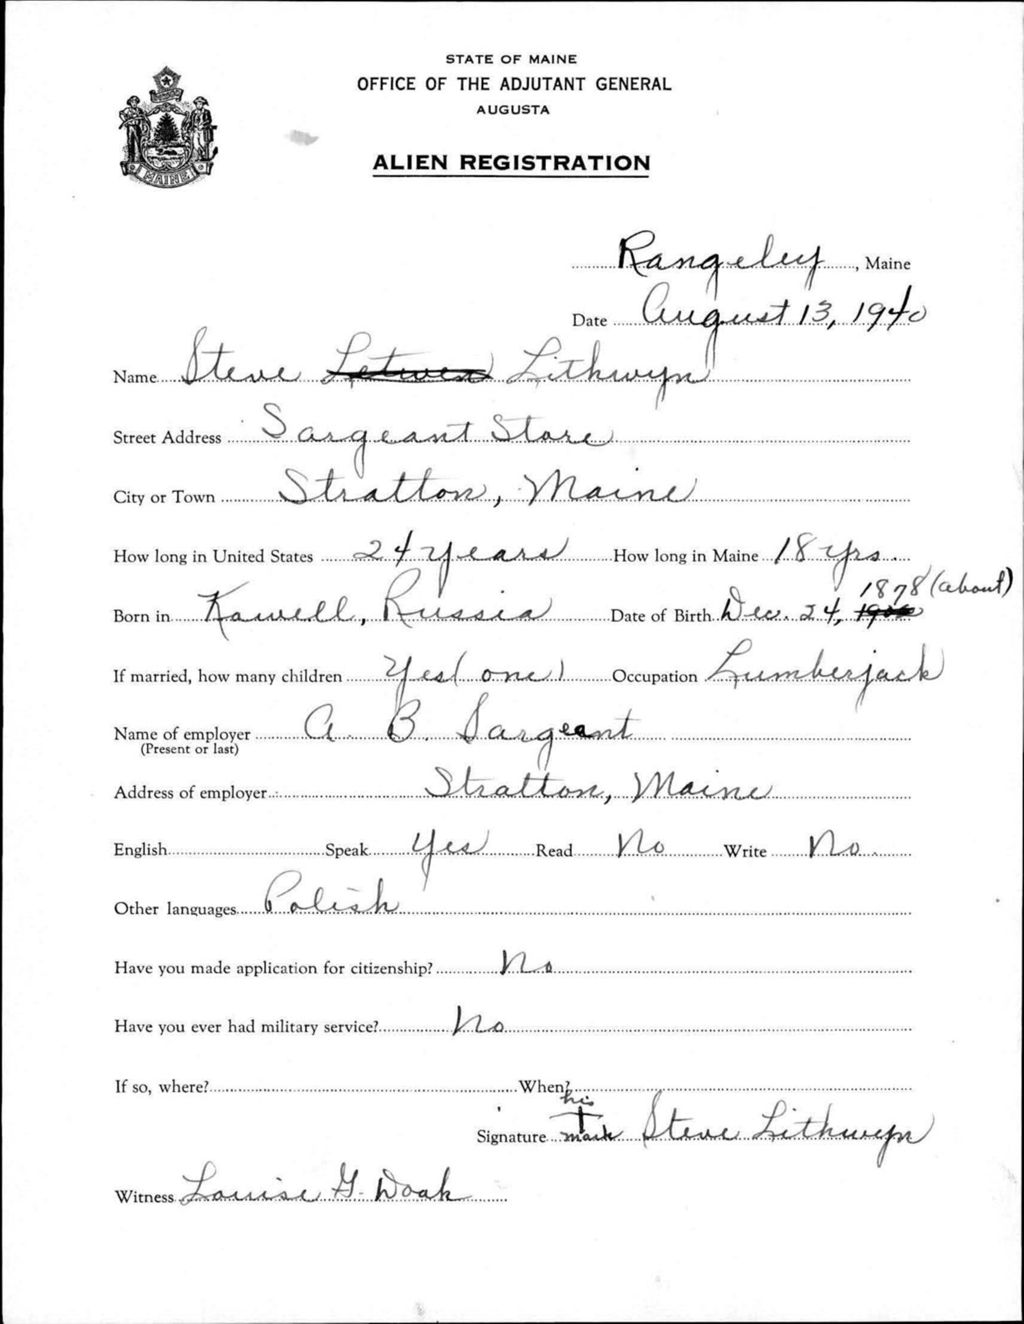 STATE OF MAINE
OFFICE OF THE ADJUTANT GENERAL
AUGUSTA
ALIEN REGISTRATION
MAINE
Rangeley, Maine
Date August 13, 1940
Name Steve Letwen Lithwyn
Street Address Sargeant Store
City or Town Stratton, Maine
How long in United States 24 years How long in Maine 18 yrs.
1878 (about)
Born in Kawell, Russia Date of Birth Dec. 24,
If married, how many children Yes (one) Occupation Lumberjack
Name of employer A. B. Sargeant
(Present or last)
Address of employer Stratton, Maine
English Speak Yes Read No Write No
Other languages Polish
Have you made application for citizenship? No
Have you ever had military service? No
If so, where? When?
his
Signature mark Steve Lithwyn
Witness Louise G. Doak